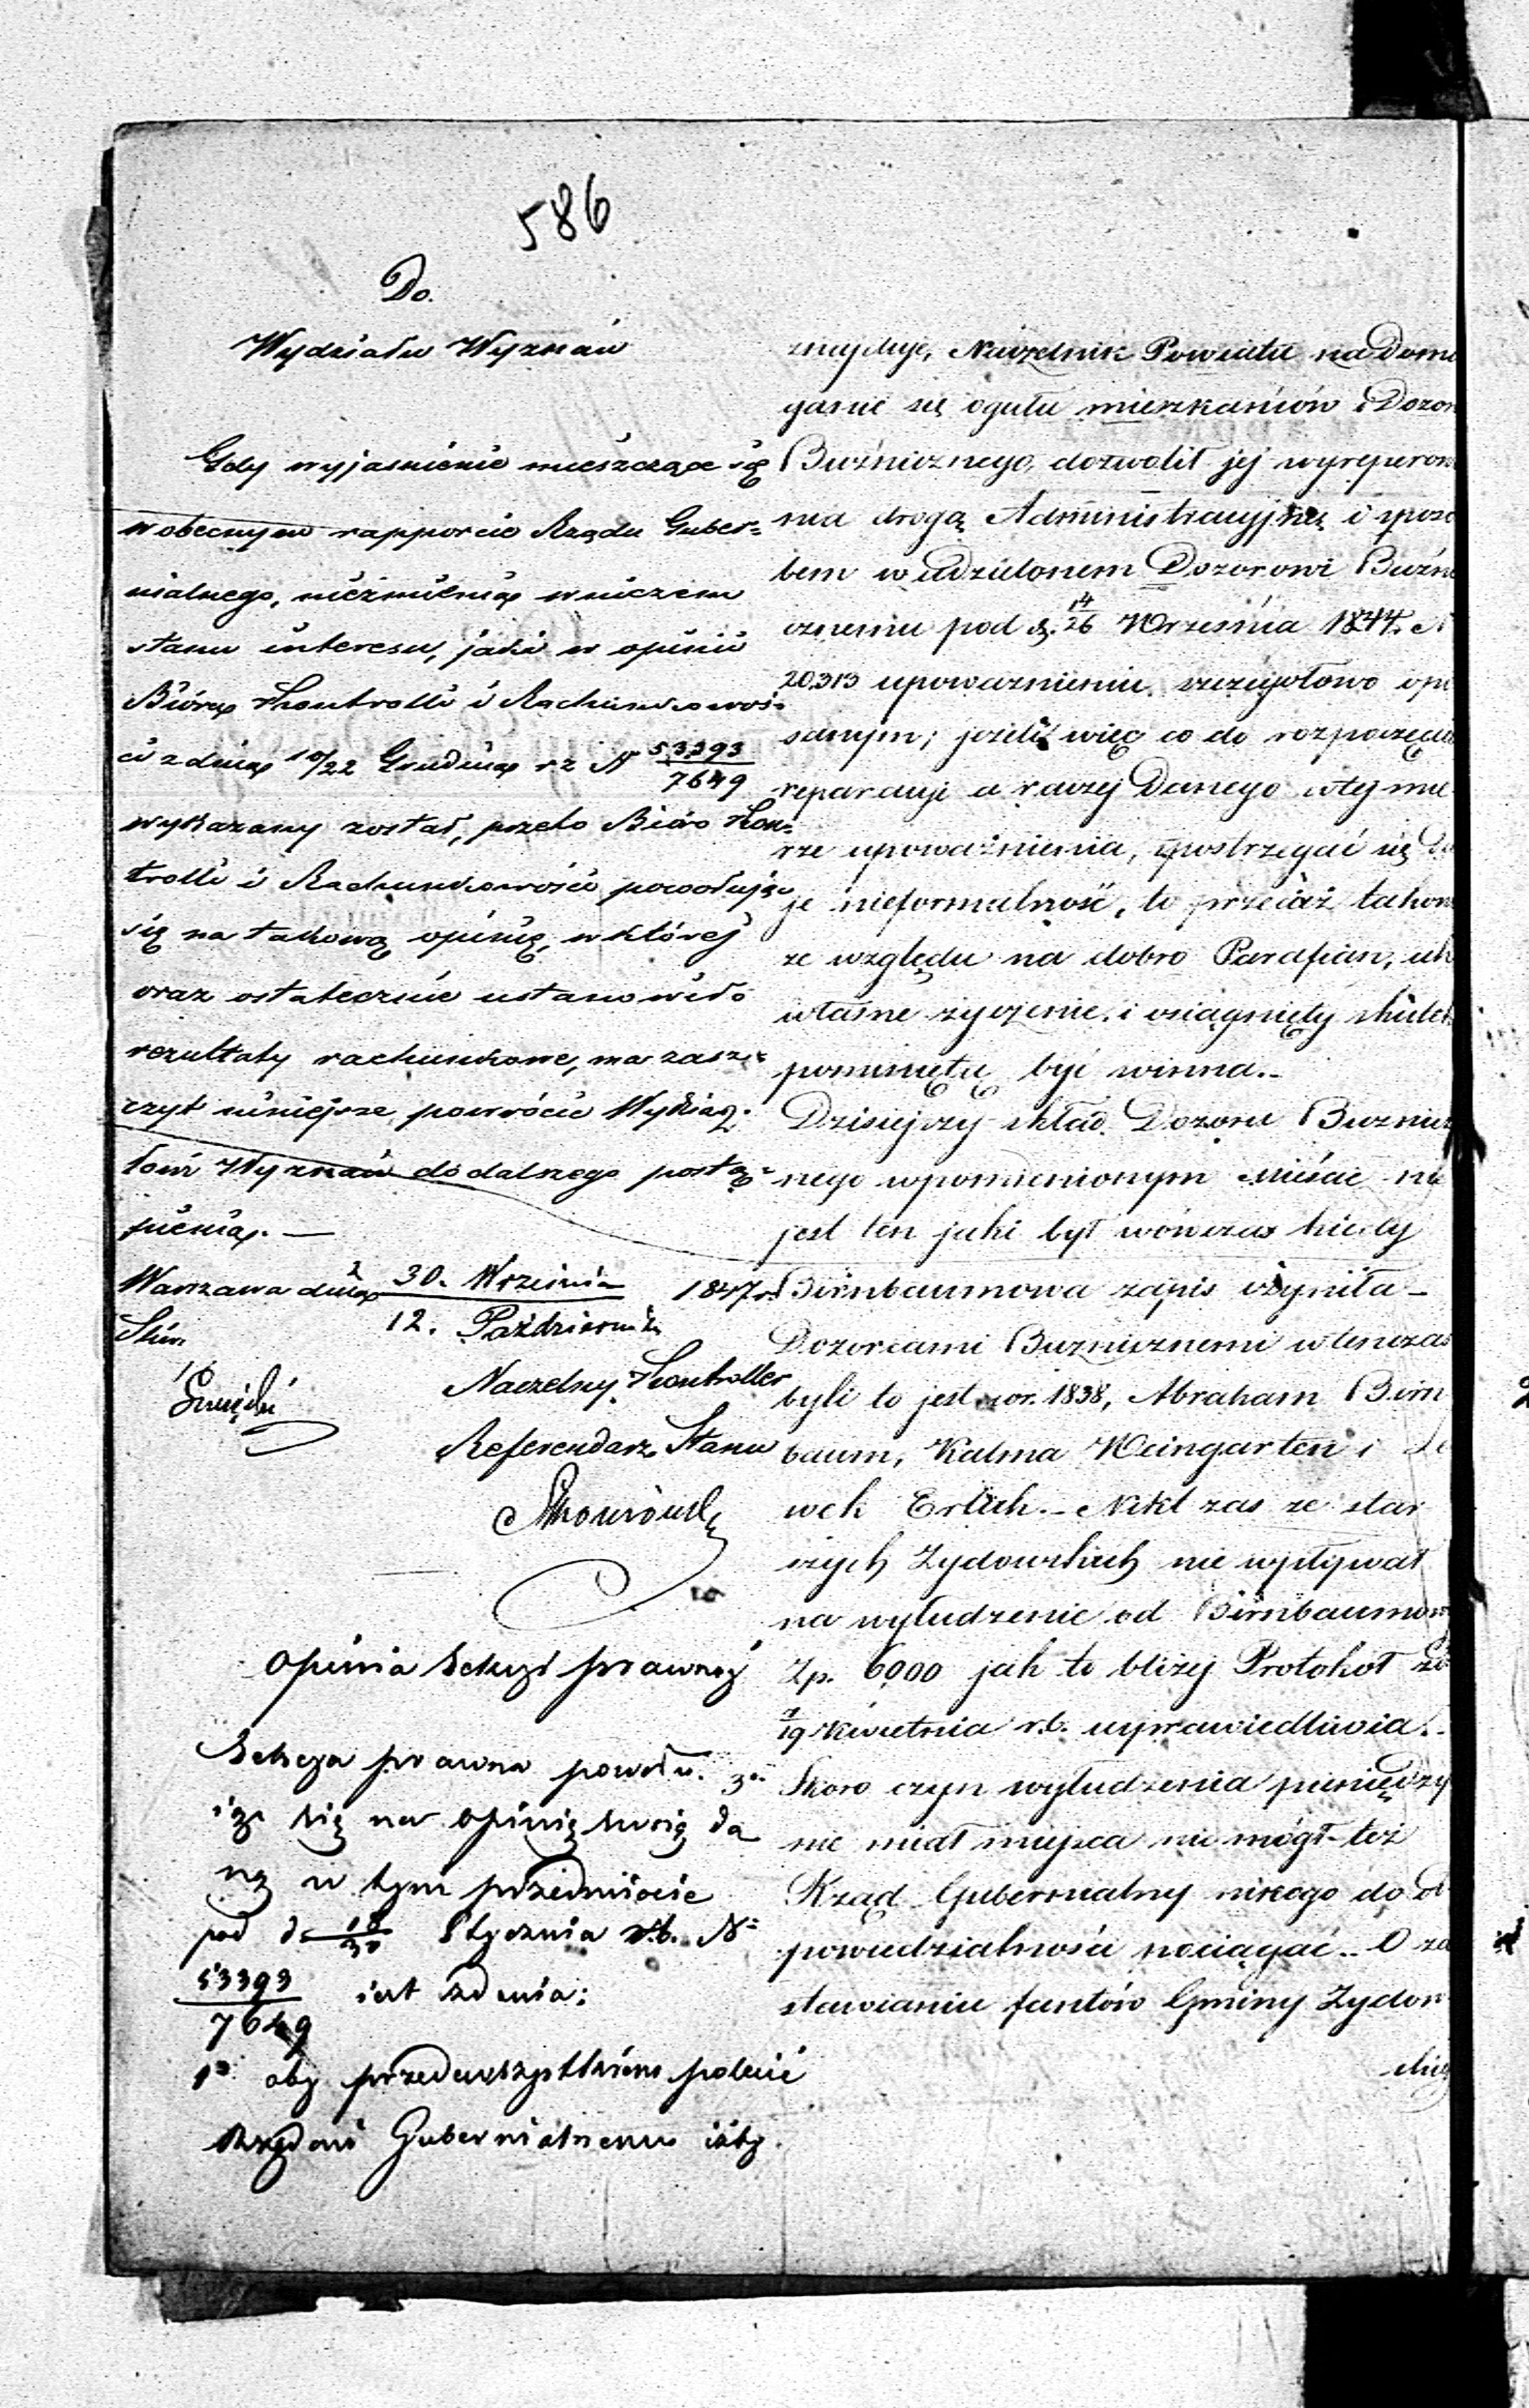 586
Do.
Wydziału Wyznań
Gdy wyjasnienie mieszczące się
w obecnym rapporcie Rządu Guber=
nialnego, niezmienia w niczem
stanu interesu, jaki w opinii
Biura Kontrolli i Rachunkowoś=
ci z dnia 10/22 Grudnia rz N 53393/7649
wykazany został, przeto Biuro Kon=
trolli i Rachunkowości powołując
się na takową opinię, w której
oraz ostatecznie ustanowiło
rezultaty rachunkowe, ma zasz=
czyt niniejsze powrócić Wydzia=
łowi Wyznań do dalszego postą=
pienia. —
Warszawa dnia 30. Września / 12. Października 1847 r.
Naczelny Kontroller
Referendarz Stanu
Opinia Sekcyi prawnej
Sekcya prawna powołu=
iąc się na opinię swoię da
ną w tym przedmiocie
pod d. 18/30 Stycznia r.b. N=
53393/7649 iest zdania:
1º aby przedewszystkiem polecić
Rządowi Gubernialnemu iżby
znayduje, Naczelnik Powiatu na Doma
ganie się ogułu mieszkańców i Dozor
Buźnicznego, dozwolił jej wyreperowa
nia drogą Administracyjną i sposo
bem w udzielonem Dozorowi Buźni
cznemu pod d. 14/26 Września 1844. N
20,313 upoważnieniu, szczegółowo opi
sanym; jeżeli więc co do rozpoczęcia
reparacyi a raczej Danego w tej mie
rze upoważnienia, spostrzegać się da
je nieformalność, to przecież takow
ze względu na dobro Parafian, ich
własne życzenie, i osiągnięty skutek
pominiętą być winna.-
Dzisiejszy skład Dozoru Buznicz
nego wpomienionym Mieście nie
jest ten jaki był wówczas kiedy
Birnbaumowa zapis czyniła -
Dozorcami Buznicznemi wtenczas
byli to jest w r. 1838, Abraham Birn
baum, Kalma Weingarten i Le
wek Erlich.- Nikt zas ze star
szych Zydowskich nie wpływał
na wyłudzenie od Birnbaumow
Zp. 6000 jak to bliżej Protokoł
7/19 Kwietnia r.b. usprawiedliwia.-
3º Skoro czyn wyłudzenia pieniędzy
nie miał miejsca nie mógł też
Rząd Gubernialny nikogo do od
powiedzialności pociągać.- O za
stawianiu fantów Gminy Zydow